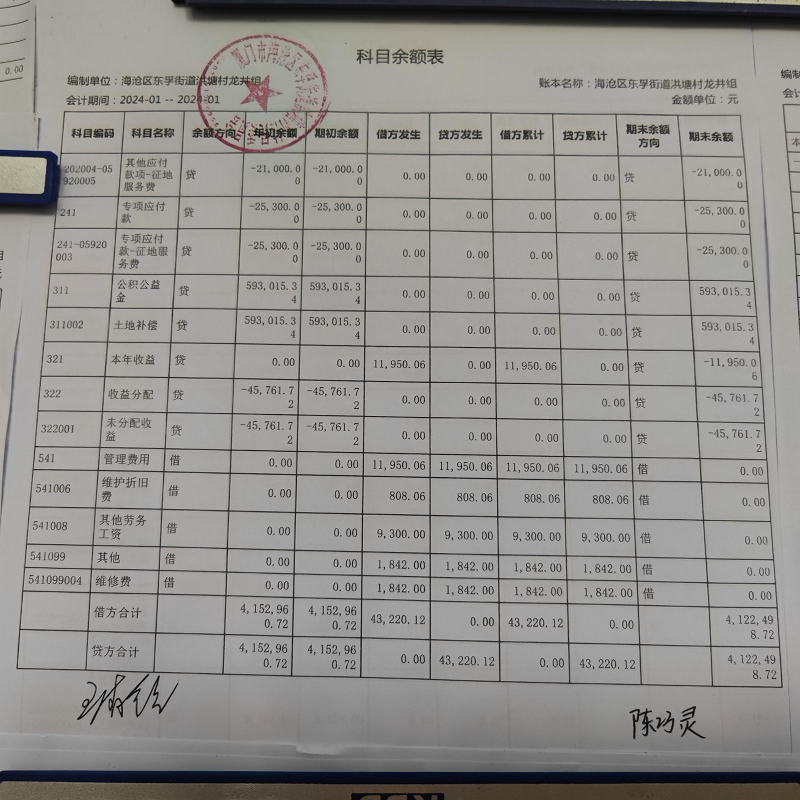 科目余额表
编制单位：海沧区东孚街道洪塘村龙井组 账本名称：海沧区东孚街道洪塘村龙井组
会计期间：2024-01 -- 2024-01 金额单位：元
科目编码 科目名称 余额方向 年初余额 期初余额 借方发生 贷方发生 借方累计 贷方累计 期末余额方向 期末余额
202004-05920005 其他应付款项-征地服务费 贷 -21,000.00 -21,000.00 0.00 0.00 0.00 0.00 贷 -21,000.00
241 专项应付款 贷 -25,300.00 -25,300.00 0.00 0.00 0.00 0.00 贷 -25,300.00
241-05920003 专项应付款-征地服务费 贷 -25,300.00 -25,300.00 0.00 0.00 0.00 0.00 贷 -25,300.00
311 公积公益金 贷 593,015.34 593,015.34 0.00 0.00 0.00 0.00 贷 593,015.34
311002 土地补偿 贷 593,015.34 593,015.34 0.00 0.00 0.00 0.00 贷 593,015.34
321 本年收益 贷 0.00 0.00 11,950.06 0.00 11,950.06 0.00 贷 -11,950.06
322 收益分配 贷 -45,761.72 -45,761.72 0.00 0.00 0.00 0.00 贷 -45,761.72
322001 未分配收益 贷 -45,761.72 -45,761.72 0.00 0.00 0.00 0.00 贷 -45,761.72
541 管理费用 借 0.00 0.00 11,950.06 11,950.06 11,950.06 11,950.06 借 0.00
541006 维护折旧费 借 0.00 0.00 808.06 808.06 808.06 808.06 借 0.00
541008 其他劳务工资 借 0.00 0.00 9,300.00 9,300.00 9,300.00 9,300.00 借 0.00
541099 其他 借 0.00 0.00 1,842.00 1,842.00 1,842.00 1,842.00 借 0.00
541099004 维修费 借 0.00 0.00 1,842.00 1,842.00 1,842.00 1,842.00 借 0.00
借方合计 4,152,960.72 4,152,960.72 43,220.12 0.00 43,220.12 0.00 4,122,498.72
贷方合计 4,152,960.72 4,152,960.72 0.00 43,220.12 0.00 43,220.12 4,122,498.72
陈巧灵
0.00
编制
会计